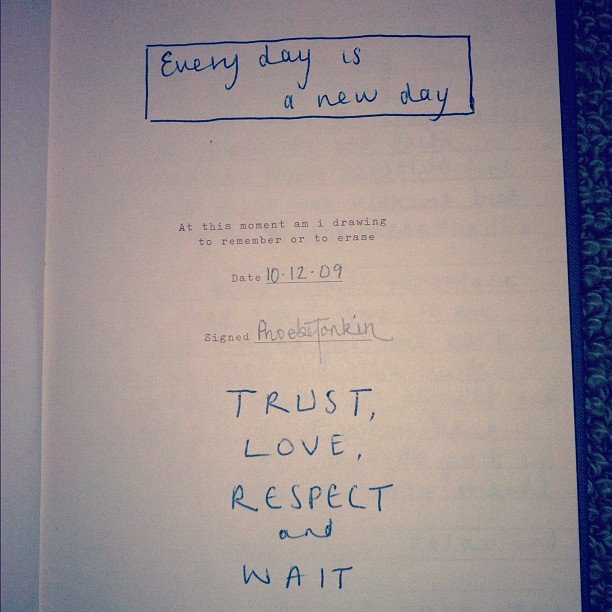 Every day is
a new day
At this moment am i drawing
to remember or to erase
Date 10.12.09
Signed Phoebe Tonkin
TRUST,
LOVE,
RESPECT
and
WAIT